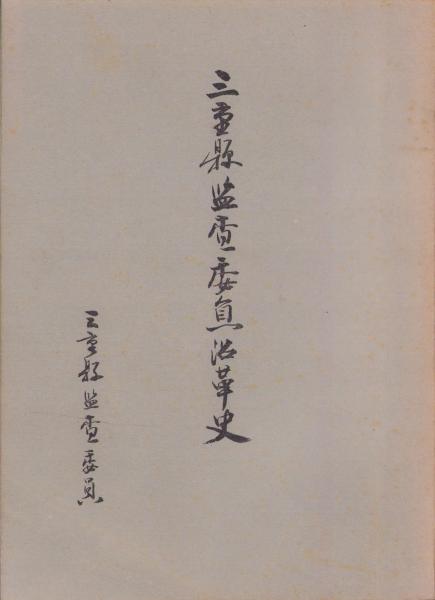 三重縣監査委員沿革史
三重縣監査委員